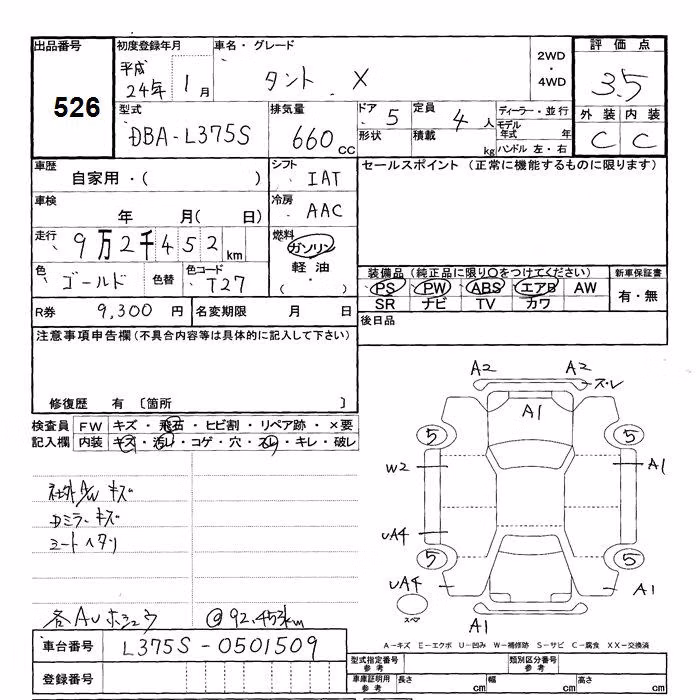 出品番号
526
初度登録年月
平成
24年 1月
車名・グレード
タント X
2WD
・
4WD
評価点
3.5
外装 内装
C C
型式
DBA-L375S
排気量
660 CC
ドア 5
形状
定員 4人
積載 kg
ディーラー・並行
モデル年式 年
ハンドル 左・右
車歴
自家用・( )
シフト
IAT
セールスポイント (正常に機能するものに限ります)
車検
年 月( 日)
冷房
AAC
走行
9万2千452km
燃料
ガソリン
軽油
( )
色
ゴールド
色替
色コード
T27
装備品 (純正品に限り○をつけてください)
PS PW ABS エアB AW
SR ナビ TV カワ
新車保証書
有・無
R券 9,300円
名変期限 月 日
後日品
注意事項申告欄 (不具合内容等は具体的に記入して下さい)
修復歴 有 〔箇所 〕
検査員記入欄
FW キズ・飛石・ヒビ割・リペア跡・×要
内装 キズ・汚レ・コゲ・穴・スレ・キレ・破レ
社外A/W キズ
Dミラーキズ
シートヘタリ
各AUホシュウ
@92,453km
A2 A2
ス・レ
A1
5 5
W2 A1
UA4
5 5
UA4 A1
スペア
A1
A-キズ E-エクボ U-凹み W-補修跡 S-サビ C-腐食 XX-交換済
車台番号 L375S-0501509
登録番号
型式指定番号 参考
類別区分番号 参考
車庫証明用 参考
長さ cm 幅 cm 高さ cm